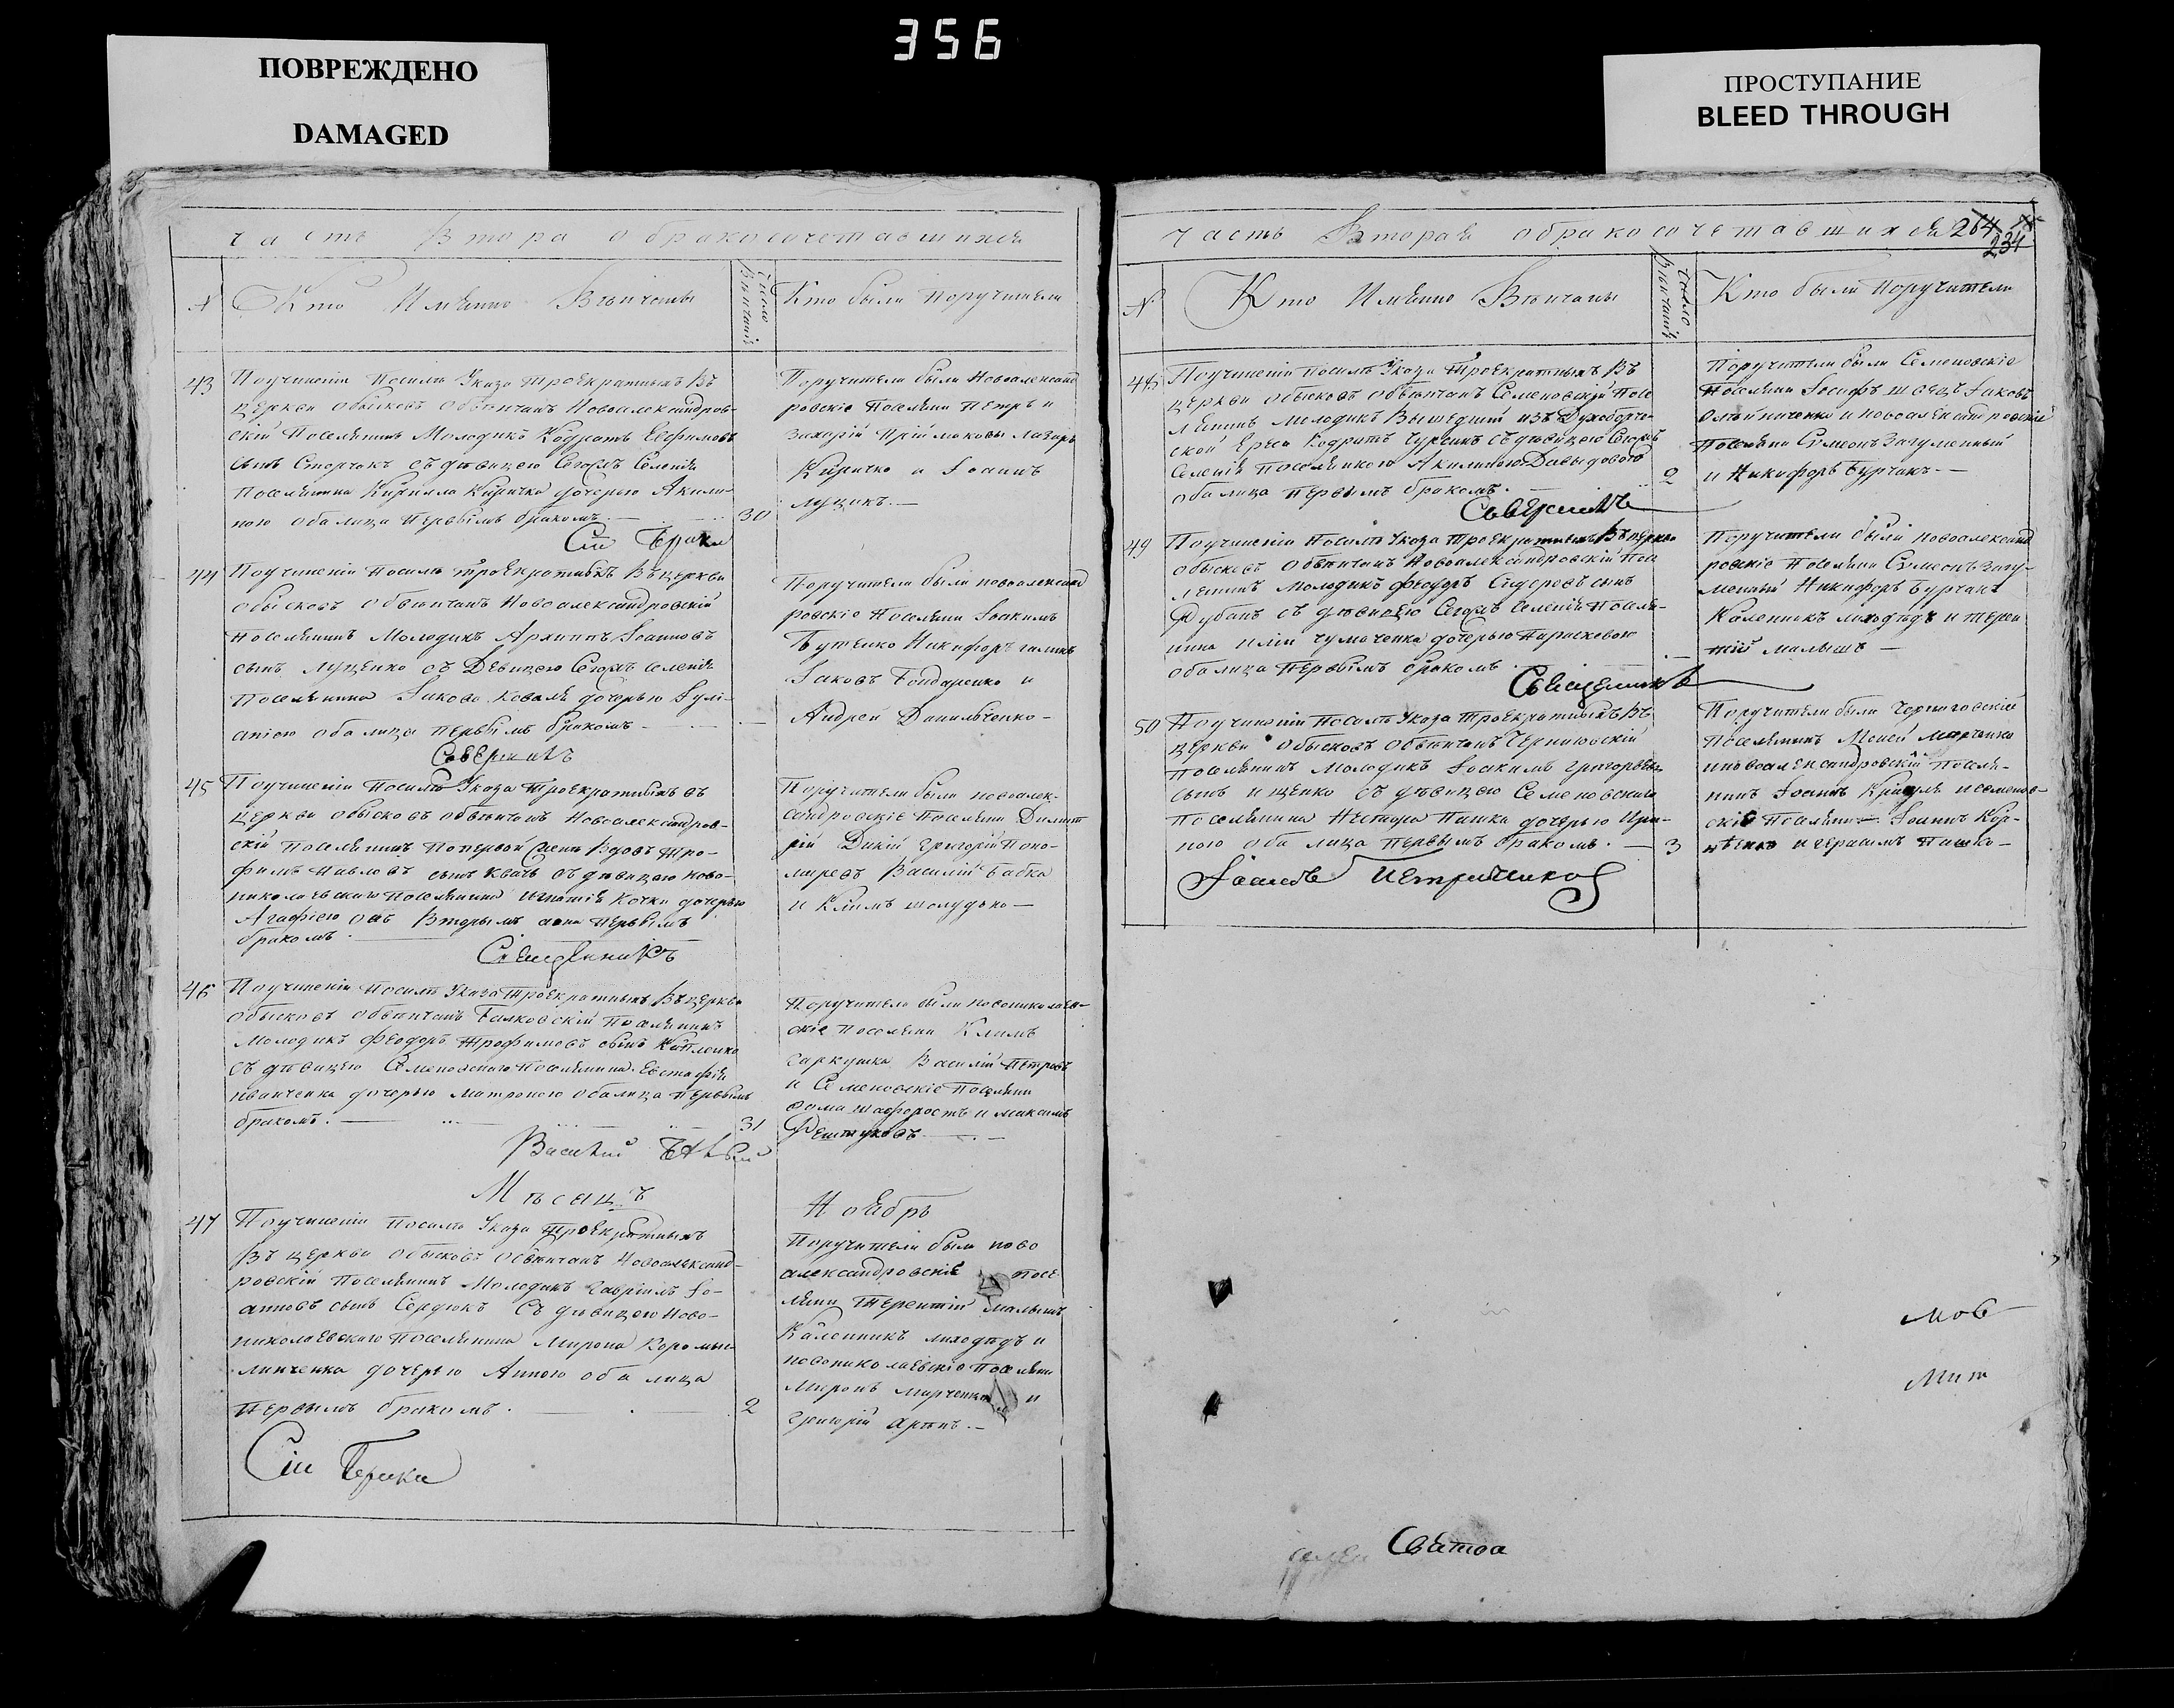 356
ПОВРЕЖДЕНО
DAMAGED
ПРОСТУПАНИЕ
BLEED THROUGH
Часть Втора о бракосочетавшихся
№
Кто Имянно Вѣнчаны
Число Вѣнчанія
Кто были Поручители
43
Поучиненіи Посилѣ Указа троекратныхъ Въ
церкви обысковъ обвѣнчанъ Новоалександров-
скій Поселянинъ Молодикъ Кодратъ Евфимовъ
сынъ Сторчакъ съ дѣвицею Сегожъ Селенія
Поселянина Кирилла Киричка дочерью Акили-
ною оба лица Первымъ бракомъ
30
Поручители были Новоалександ
ровскіе Поселяни Петръ и
Захарій Пріймаковы Лазарь
Киричко и Іоаннъ
луцикъ.
Сіи Браки
44
Поучиненіи Посилѣ троекратныхъ Въ церкви
обысковъ обвѣнчанъ Новоалександровскій
Поселянинъ Молодикъ Архиппъ Іоанновъ
сынъ Луценко съ Дѣвицею Сегожъ селенія
Поселянина Іакова Коваля дочерью Іулі-
аніею оба лица первымъ бракомъ
Поручители были новоалександ
ровскіе Поселяни Іоакимъ
Бутенко Никифоръ галичъ
Іаковъ Бондаренко и
Андрей Данильченко
Совершилъ
45
Поучиненіи Посилѣ Указа Троекратныхъ въ
церкви обысковъ обвѣнчанъ Новоалександров-
скій поселянинъ По первой Женѣ Вдовъ Тро-
фимъ Павловъ сынъ Квачъ съ дѣвицею ново-
николаевскаго поселянина Игнатія Кочки дочерью
Агафіею онъ Вторымъ аона Первымъ
бракомъ
Поручители были новоалек-
сандровскіе Поселяни Димит
рій Дикій Григорій Поно-
маревъ Василій бабка
и Климъ шолудько
Священникъ
46
Поучиненіи Посилѣ Указа Троекратныхъ Въ церкви
обысковъ обвѣнчанъ Балковскій Поселянинъ
Молодикъ Феодоръ Трофимовъ сынъ
съ дѣвицею Семеновскаго Поселянина Евстафія
иванченка дочерью матроною оба лица Первымъ
бракомъ.
31
Поручители были новониколаев-
скіе Поселяни Климъ
саркушка Василій Петровъ
и Семеновскіе Поселяни
Фома шафоростъ и максимъ
Василій Бѣлый
Мѣсяцъ
Ноябрь
47
Поучиненіи Посилѣ Указа Троекратныхъ
Въ церкви обысковъ обвѣнчанъ Новоалександ-
ровскій Поселянинъ Молодикъ Гавріилъ Іо-
анновъ сынъ Сердюкъ Съ дѣвицею Ново-
николаевскаго Поселянина Мирона Коромыс-
линченка дочерью Анною оба лица
Первымъ бракомъ.
2
Поручители были ново
александровскіе посе
ляни Терентій малышъ
Каленникъ лиходѣдъ и
новониколаевскіе поселяни
Миронъ марченко и
григорій
Сіи Браки
Часть Вторая о бракосочетавшихся 264
234
№
Кто Имянно Вѣнчаны
Число Вѣнчанія
Кто были Поручители
48
Поучиненіи Посилѣ Указа Троекратныхъ Въ
церкви обысковъ обвѣнчанъ Семеновскій Посе
лянинъ молодикъ Вышедшій изъ Духоборче-
ской Ереси Кодратъ Чурсинъ съ дѣвицею Сегожъ
Селенія поселянкою Акилиною Давыдовою
оба лица первымъ бракомъ.
2
Поручители были Семеновскіе
Поселяни Іосифъ швецъ Іаковъ
и новоалександровскіе
Поселяни Симеонъ Загуменный
и Никифоръ Бурчакъ.
Совершилъ
49
Поучиненіи Посилѣ Указа Троекратныхъ Въ церкви
обысковъ обвѣнчанъ Новоалександровскій Посе
лянинъ Молодикъ феодоръ Сидоровъ сынъ
Дубанъ съ дѣвицею Сегожъ Селенія Поселя-
нина иліи чумаченка дочерью Парасковою
оба лица первымъ бракомъ.
Поручители были новоалександ
ровскіе Поселяни Симеонъ загу-
менный Никифоръ Бурчакъ
Каленикъ лиходѣдъ и терен
тій малышъ
Священникъ
50
Поучиненіи Посилѣ Указа Троекратныхъ Въ
церкви обысковъ обвѣнчанъ Черниговскій
поселянинъ Молодикъ Іоакимъ григорьевъ
сынъ ищенко съ дѣвицею Семеновскаго
поселянина Нестора Пашка дочерью Ири-
ною оба лица первымъ бракомъ.
3
Поручители были Черниговскій
Поселянинъ Моисей Марченко
иновоалександровскій поселя-
нинъ Іоаннъ и семенов-
скіе Поселяни Іоаннъ Кор-
нѣенко и герасимъ Пашко
Іоаннъ
мов
мит
Святоа